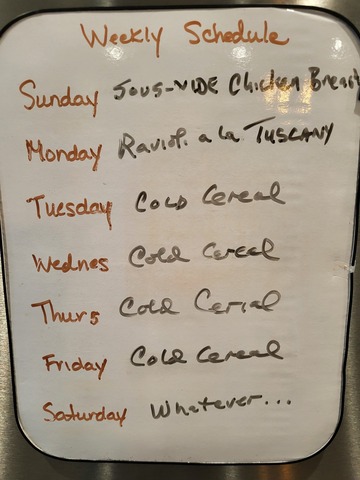 Weekly Schedule
Sunday Sous-vide Chicken Breast
Monday Ravioli a la TUSCANY
Tuesday Cold Cereal
Wednes Cold Cereal
Thurs Cold Cerial
Friday Cold Cereal
Saturday Whatever...